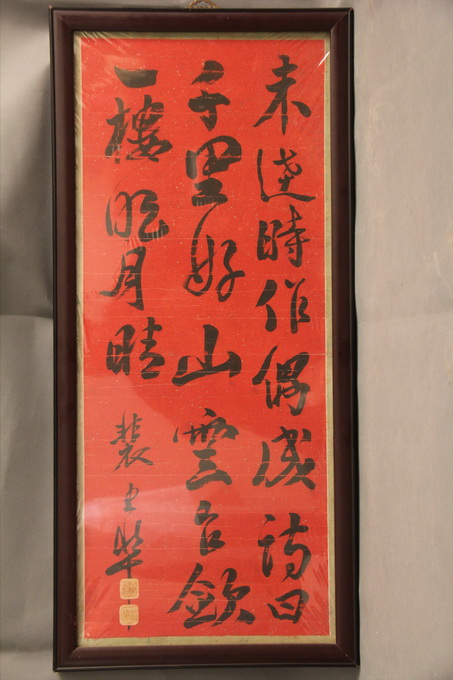 未達時作偶成詩曰
千里好山雲乍斂
一樓明月晴
裴